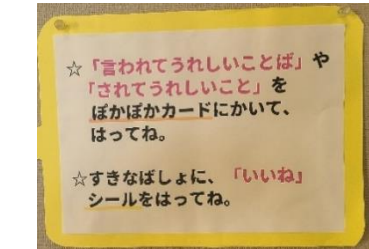 ☆「言われてうれしいことば」や
「されてうれしいこと」を
ぽかぽかカードにかいて、
はってね。
☆すきなばしょに、「いいね」
シールをはってね。